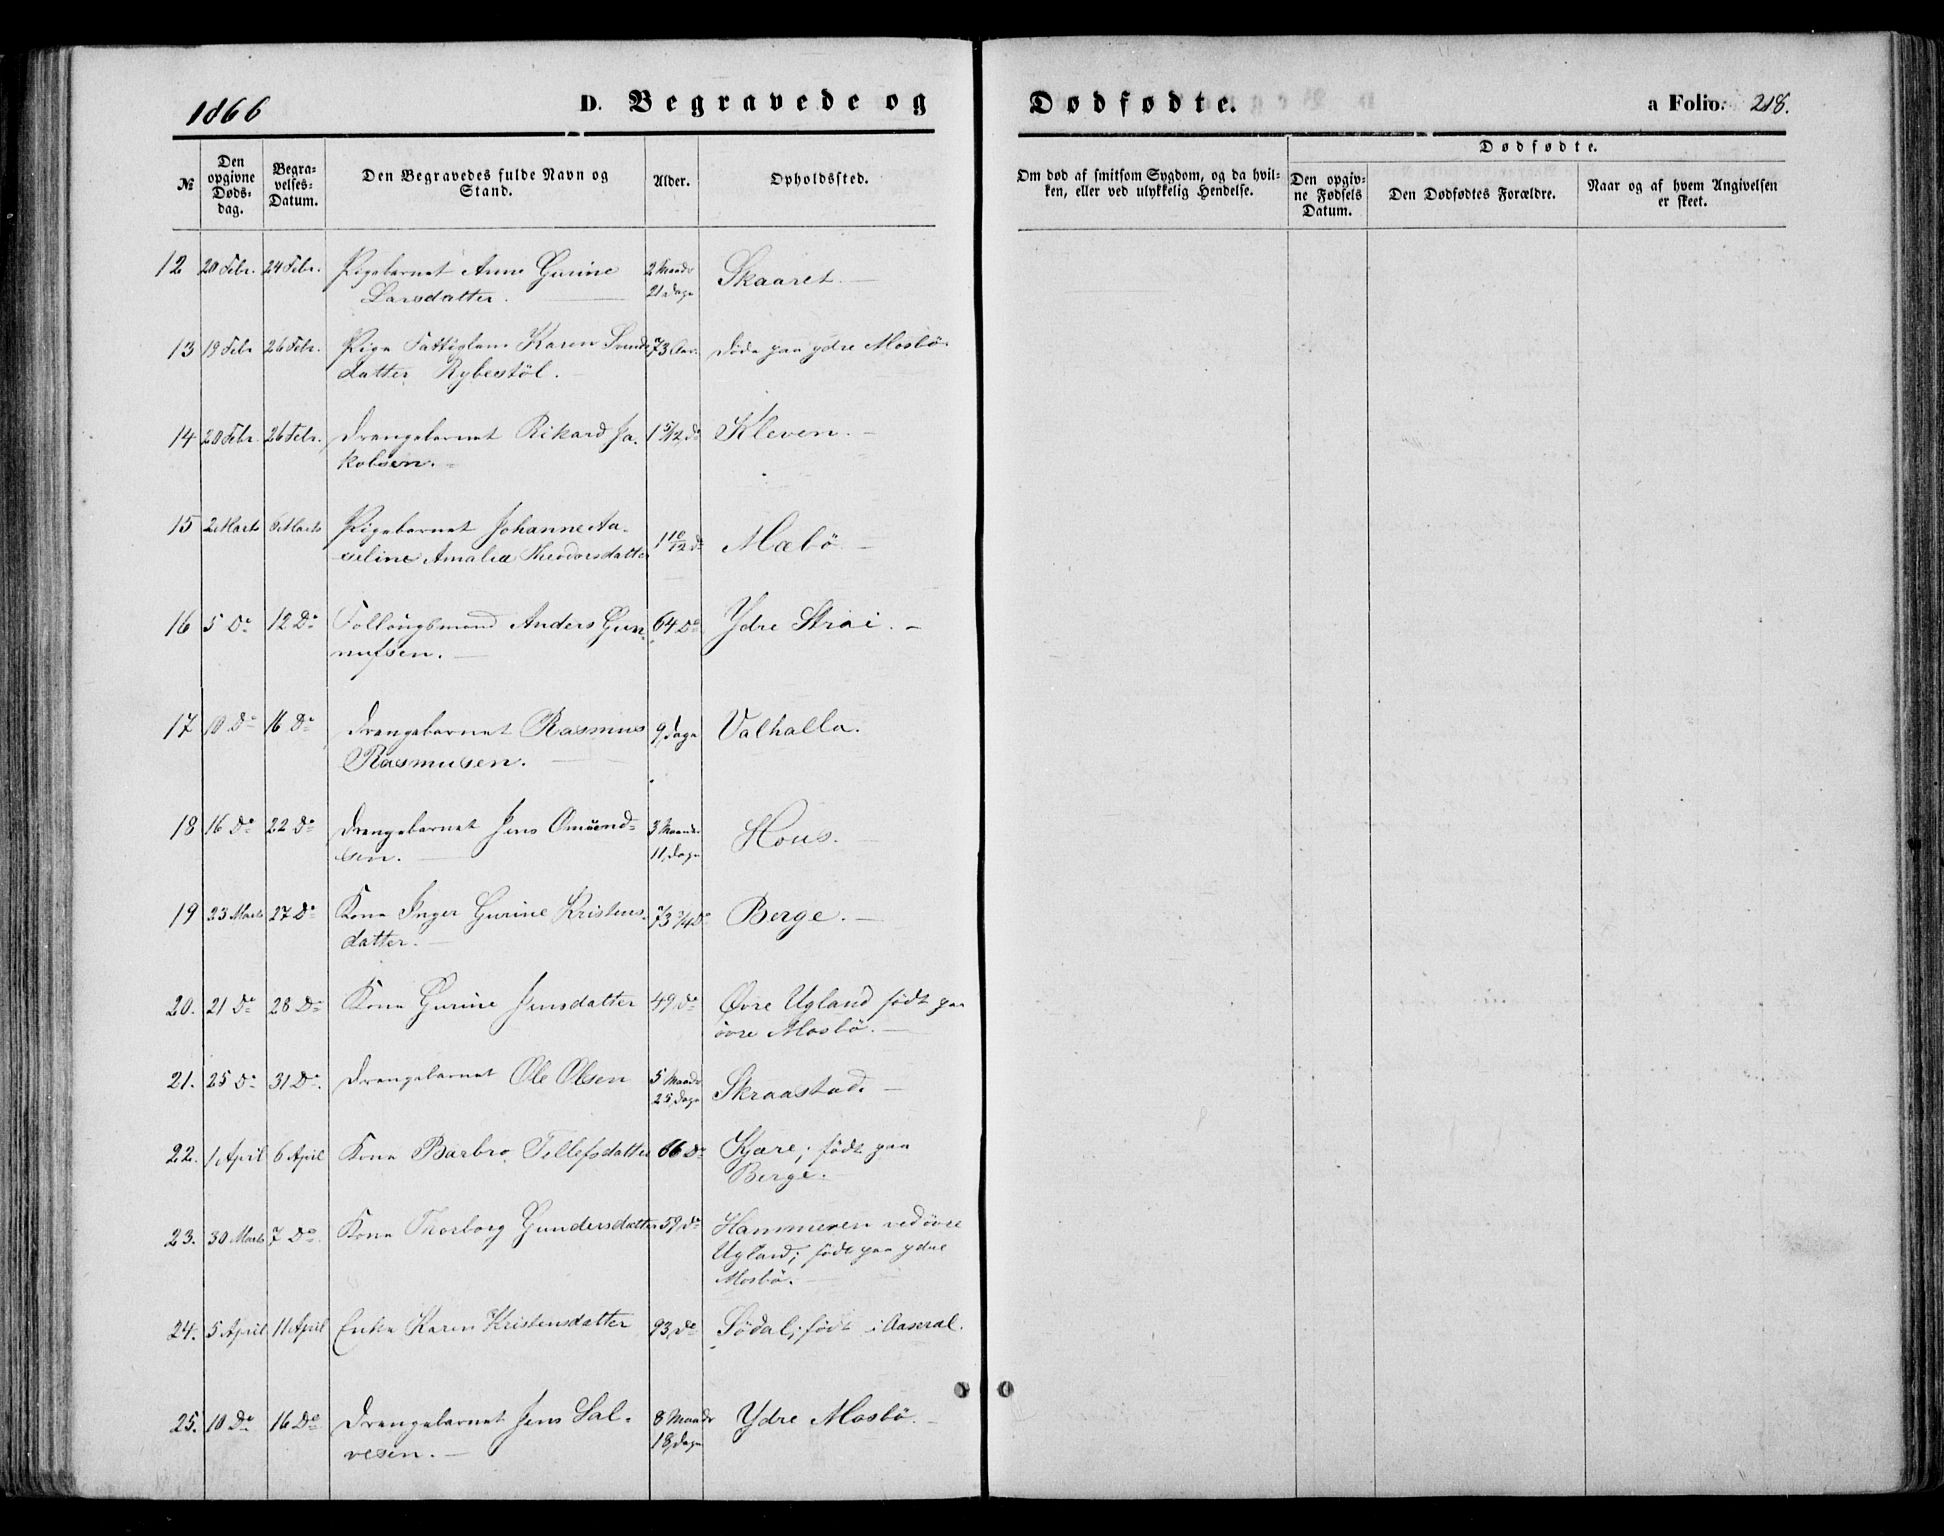 1866
D. Begravede og
Dødfødte.
a Folio. 218.
№
Den opgivne Døds-dag.
Begra-velses-Datum.
Den Begravedes fulde Navn og Stand.
Alder.
Opholdssted.
Om død af smitsom Sygdom, og da hvil-
ken, eller ved ulykkelig Hendelse.
Dødfødte.
Den opgiv-ne Fødsels Datum.
Den Dødfødtes Forældre.
Naar og af hvem Angivelsen er skeet.
12 20 Febr. 24 Febr. Pigebarnet Anne Gurine 2 Maaneder Skaaret.
Larsdatter. 21 Dage
13 19 Febr 26 Febr. Pige Fattiglem Karen Svends 73 Aar. døde paa ydre Mosbö.
datter Rybestöl.
14 20 Febr. 26 Febr. Drengebarnet Rikard Ja- 1 5/12 Do Kleven.
kobsen.
15 2 Marts Marts Pigebarnet Johanne Aa-
seline Amalie Theodorsdatter 1 10/12 Do Mæbö
16 5 Do 12 Do Follougsmand Anders Gun- 64 Do Ydre Strai.
nufsen.
17 10 Do 16 Do Drengebarnet Rasmus 9 Dage Valhalla.
Rasmusen.
18 16 Do 22 Do Drengebarnet Jens Omund- 3 Maaneder Hous.
sen. 11 Dage
19 23 Marts 27 Do Kone Inger Gurine Kristens- 73 3/4 Do Berge.
datter.
20. 21 Do 28 Do Kone Gurine Jensdatter 49 Do Övre Ugland födt paa
övre Mosbö.
21. 25 Do 31 Do. Drengebarnet Ole Olsen 5 Maaneder Skraastad.
25 Dage
22. 1 April 6 April Kone Barbro Tellefsdatter 66 Do Kjære; födt paa
Berge.
23. 30 Marts 7 Do. Kone Thorborg Gundersdatter 59 Do Hammeren ved övre
Ugland; födt paa ydre
Mosbö.
24. 5 April 11 April Enke Karen Kristensdatter 93 Do Södal; födt i Aaseral.
25. 10 Do 16 Do Drengebarnet Jens Sal- 8 Maaneder Ydre Mosbö.
vesen. 18 Dage